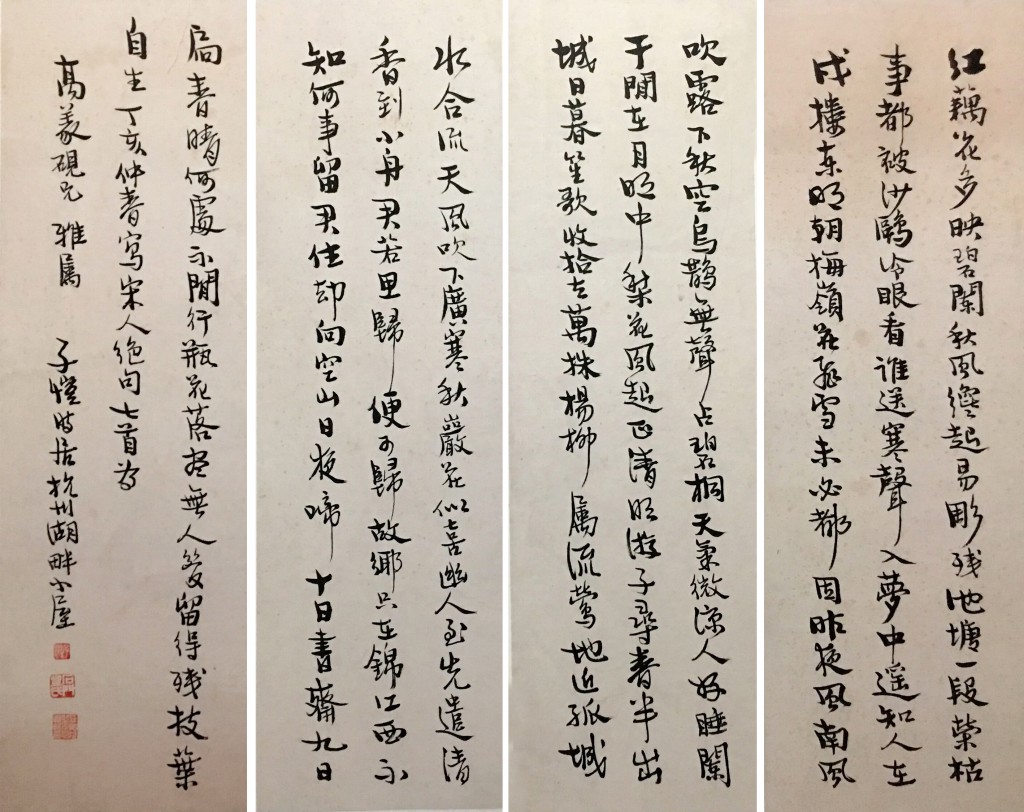 红藕花多映碧闌秋風纔起易彫残池塘一段榮枯
事都被沙鷗冷眼看誰送寒聲入夢中遥知人在
戍樓东明朝梅嶺花飛雪未必都因昨夜風南風
吹露下秋空烏鵲無聲占碧桐天氣微涼人好睡闌
干閒在月明中棃花風起正清明游子尋春半出
城日暮笙歌收拾去萬株楊柳屬流鶯地近孤城
水合流天風吹下廣寒秋巖花似喜幽人至先遣清
香到小舟君若思歸便可歸故鄉只在錦江西不
知何事留君住却向空山日夜啼十日書齋九日
扃春晴何處不閒行瓶花落尽無人管留得残枝葉
自生丁亥仲春寫宋人绝句七首为
高義硯兄 雅属 子愷时居杭州湖畔小屋